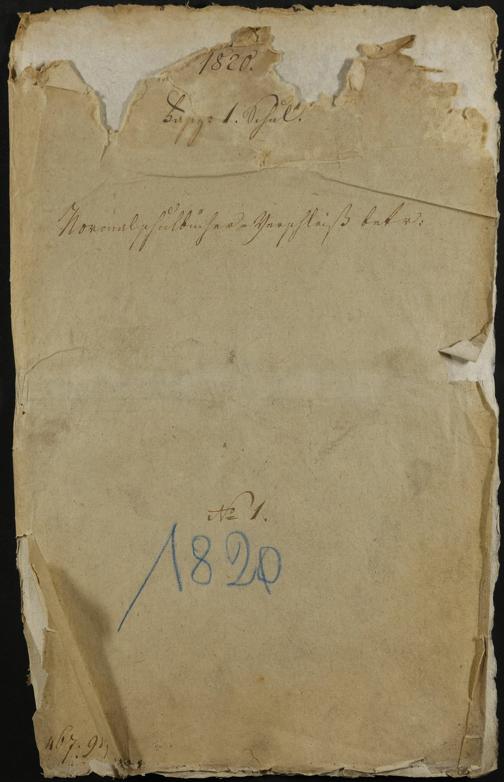 1820.
1. Schul.
Normalschulbücher-Verschleiß betr:
No 1.
1820